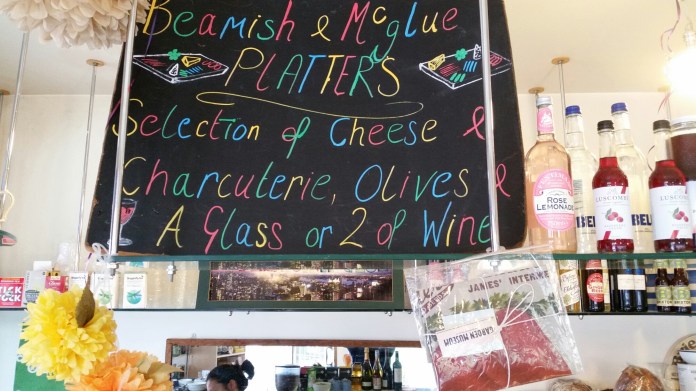 Beamish & McGlue
PLATTERS
Selection of Cheese &
Charcuterie, Olives &
A Glass or 2 of Wine
ROSE
LEMONADE
LUSCOMBE
LUSCOMBE
JAMES' INTERWE
GARDEN MUSEUM